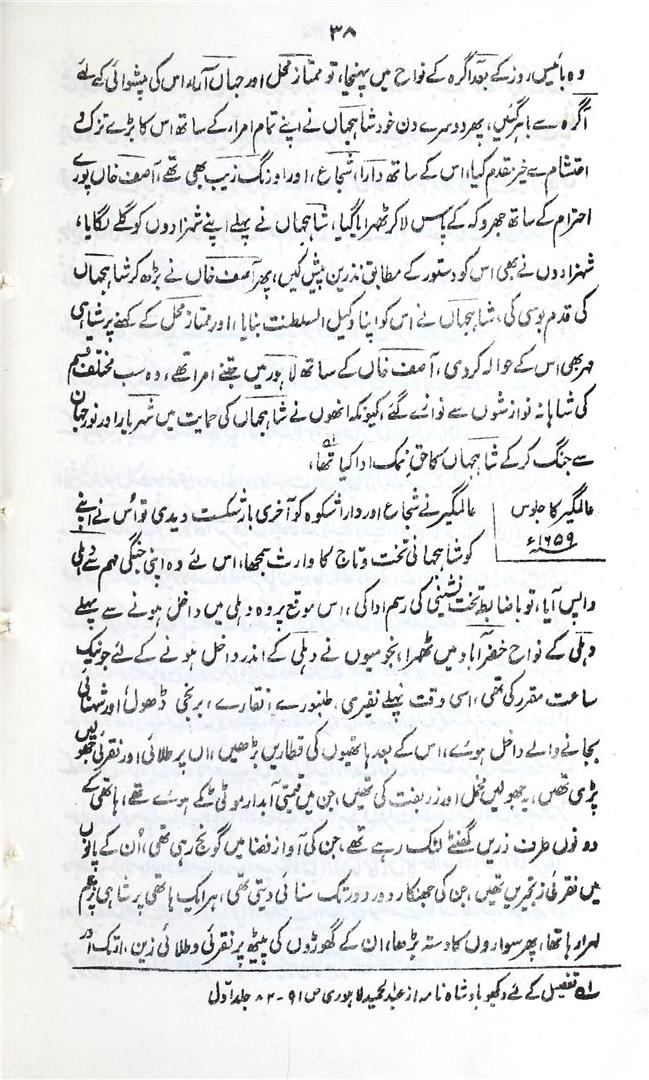 ۳۸
وہ بائیس روز کے بعد آگرہ کے نواح میں پہنچا، تو ممتاز محل اور جہاں آراء اس کی پیشوائی کے لئے
آگرہ سے باہر گئیں، پھر دوسرے دن خود شاہجہاں نے اپنے تمام امراء کے ساتھ اس کا بڑے تزک و
احتشام سے خیر مقدم کیا، اس کے ساتھ دارا، شجاع، اور اورنگ زیب بھی تھے، آصف خاں پورے
احترام کے ساتھ جھروکہ کے پاس لا کر ٹھہرایا گیا، شاہجہاں نے پہلے اپنے شہزادوں کو گلے لگایا،
شہزادوں نے بھی اس کو دستور کے مطابق نذریں پیش کیں، پھر آصف خاں نے بڑھ کر شاہجہاں
کی قدم بوسی کی، شاہجہاں نے اس کو اپنا وکیل السلطنت بنایا، اور ممتاز محل کے کہنے پر شاہی
مہر بھی اس کے حوالہ کر دی، آصف خاں کے ساتھ لاہور میں جتنے امراء تھے، وہ سب مختلف قسم
کی شاہانہ نوازشوں سے نوازے گئے، کیونکہ انھوں نے شاہجہاں کی حمایت میں شہریار اور نورجہاں
سے جنگ کر کے شاہجہاں کا حق نمک ادا کیا تھا،
عالمگیر کا جلوس عالمگیر نے شجاع اور دارا شکوہ کو آخری بار شکست دیدی تو اُس نے اپنے
۱۶۵۹ء کو شاہجہانی تخت و تاج کا وارث سمجھا، اس لئے وہ اپنی جنگی مہم سے دہلی
واپس آیا، تو باضابطہ تخت نشینی کی رسم ادا کی، اس موقع پر وہ دہلی میں داخل ہونے سے پہلے
دہلی کے نواح خضرآباد میں ٹھہرا، نجومیوں نے دہلی کے اندر داخل ہونے کے لئے جو نیک
ساعت مقرر کی تھی، اسی وقت پہلے نفیری، طنبورے، نقارے، برنجی ڈھول اور شہنائی
بجانے والے داخل ہوئے، اس کے بعد ہاتھیوں کی قطاریں بڑھیں، ان پر طلائی اور نقرئی جھولیں
پڑی تھیں، یہ جھولیں مخمل اور زربفت کی تھیں، جن میں قیمتی آبدار موتی ٹکے ہوئے تھے، ہاتھی کے
دونوں طرف زریں گھنٹے لٹک رہے تھے، جن کی آواز فضا میں گونج رہی تھی، اُن کے پاؤں
میں نقرئی زنجیریں تھیں، جن کی جھنکار دور دور تک سنائی دیتی تھی، ہر ایک ہاتھی پر شاہی پرچم
لہرا رہا تھا، پھر سواروں کا دستہ بڑھا، ان کے گھوڑوں کی پیٹھ پر نقرئی و طلائی زین،
لہ تفصیل کے لئے دیکھو بادشاہ نامہ از عبد الحمید لاہوری ص ۹۱ - ۸۳ جلد اول